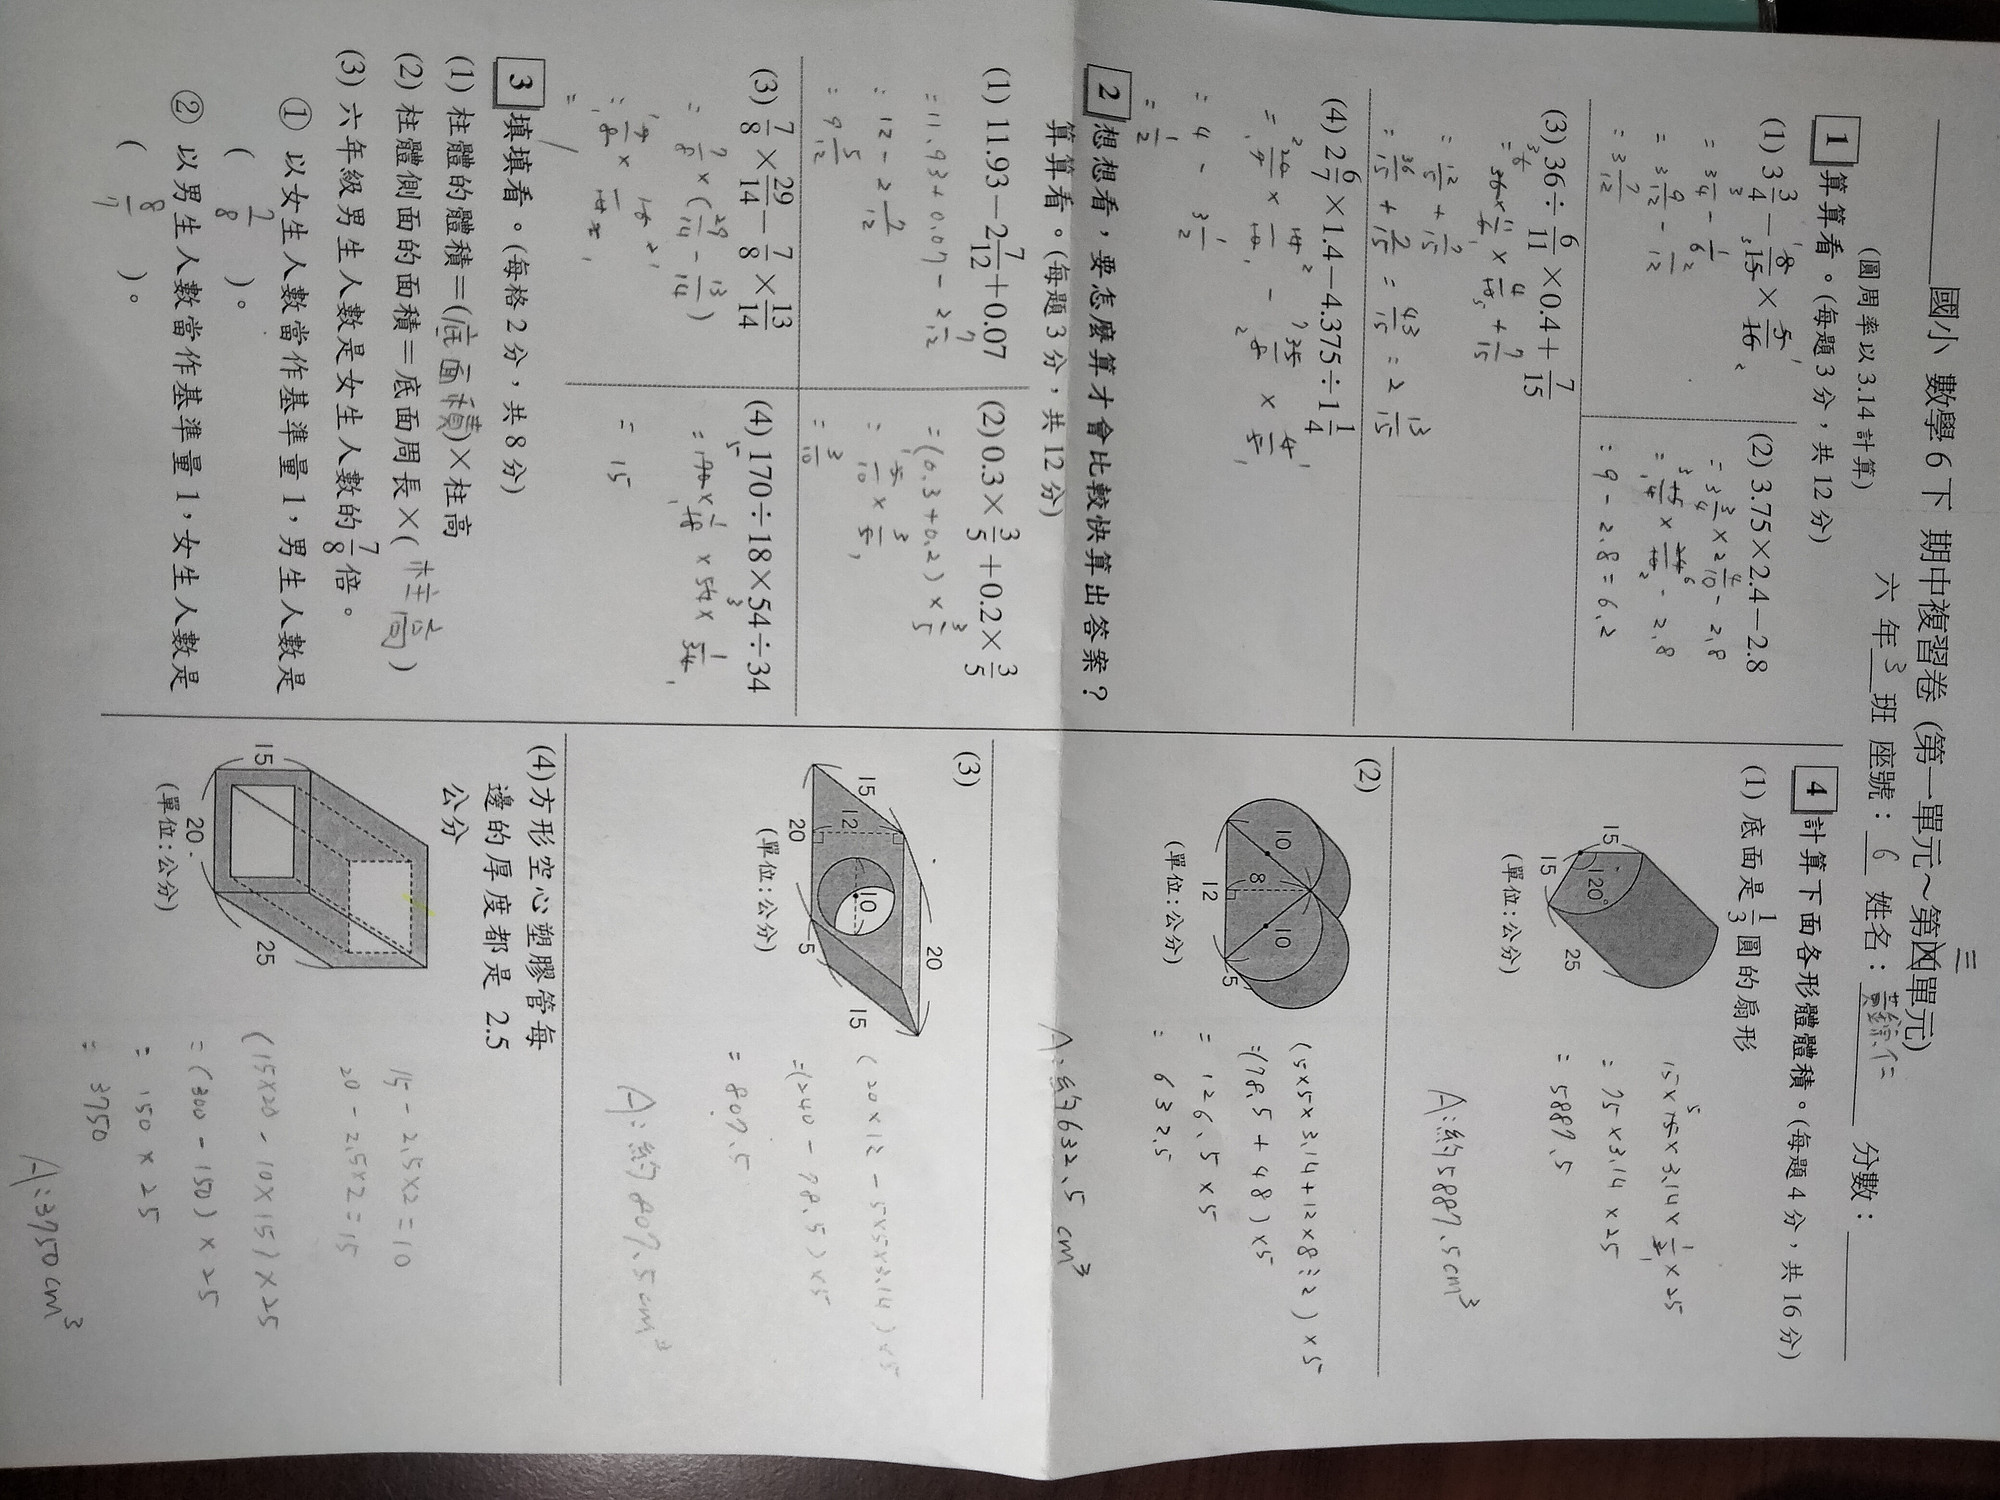 國小 數學 6 下 期中複習卷 (第一單元~第四單元)
三
六 年 3 班 座號: 6 姓名: 分數:
(圓周率以 3.14 計算)
1 算算看。(每題 3 分,共 12 分)
(1) 3 3/4 − 8/15 × 5/16
= 3 3/4 − 1/6
= 3 9/12 − 2/12
= 3 7/12
(2) 3.75×2.4−2.8
= 3 3/4 × 2 4/10 − 2.8
= 15/4 × 24/10 − 2.8
= 9 − 2.8 = 6.2
(3) 36÷ 6/11 ×0.4+ 7/15
= 36 × 11/6 × 4/10 + 7/15
= 12/15 + 7/15
= 36/15 + 7/15 = 43/15 = 2 13/15
(4) 2 6/7 ×1.4−4.375÷1 1/4
= 20/7 × 14/10 − 35/8 × 4/5
= 4 − 3 1/2
= 1/2
2 想想看,要怎麼算才會比較快算出答案?
算算看。(每題 3 分,共 12 分)
(1) 11.93−2 7/12 +0.07
= 11.93+0.07 − 2 7/12
= 12 − 2 7/12
= 9 5/12
(2) 0.3× 3/5 +0.2× 3/5
= (0.3+0.2) × 3/5
= 5/10 × 3/5
= 3/10
(3) 7/8 × 29/14 − 7/8 × 13/14
= 7/8 × ( 29/14 − 13/14 )
= 7/8 × 16/14
= 1
(4) 170÷18×54÷34
= 170 × 1/18 × 54 × 1/34
= 15
3 填填看。(每格 2 分,共 8 分)
(1) 柱體的體積=(底面積)×柱高
(2) 柱體側面的面積=底面周長×(柱高)
(3) 六年級男生人數是女生人數的 7/8 倍。
① 以女生人數當作基準量 1,男生人數是
( 7/8 )。
② 以男生人數當作基準量 1,女生人數是
( 8/7 )。
4 計算下面各形體體積。(每題 4 分,共 16 分)
(1) 底面是 1/3 圓的扇形
15
120°
15
25
(單位:公分)
15×15×3.14× 1/3 ×25
= 75×3.14×25
= 5887.5
A:約5887.5cm³
(2)
10
8
10
12
5
(單位:公分)
(5×5×3.14+12×8÷2)×5
=(78.5+48)×5
= 126.5×5
= 632.5
A:約632.5cm³
(3)
15
12
20
10
5
20
15
(單位:公分)
(20×12−5×5×3.14)×5
=(240−78.5)×5
= 807.5
A:約807.5cm³
(4) 方形空心塑膠管每
邊的厚度都是 2.5
公分
15
20
25
(單位:公分)
15−2.5×2=10
20−2.5×2=15
(15×20−10×15)×25
= (300−150)×25
= 150×25
= 3750
A:3750cm³